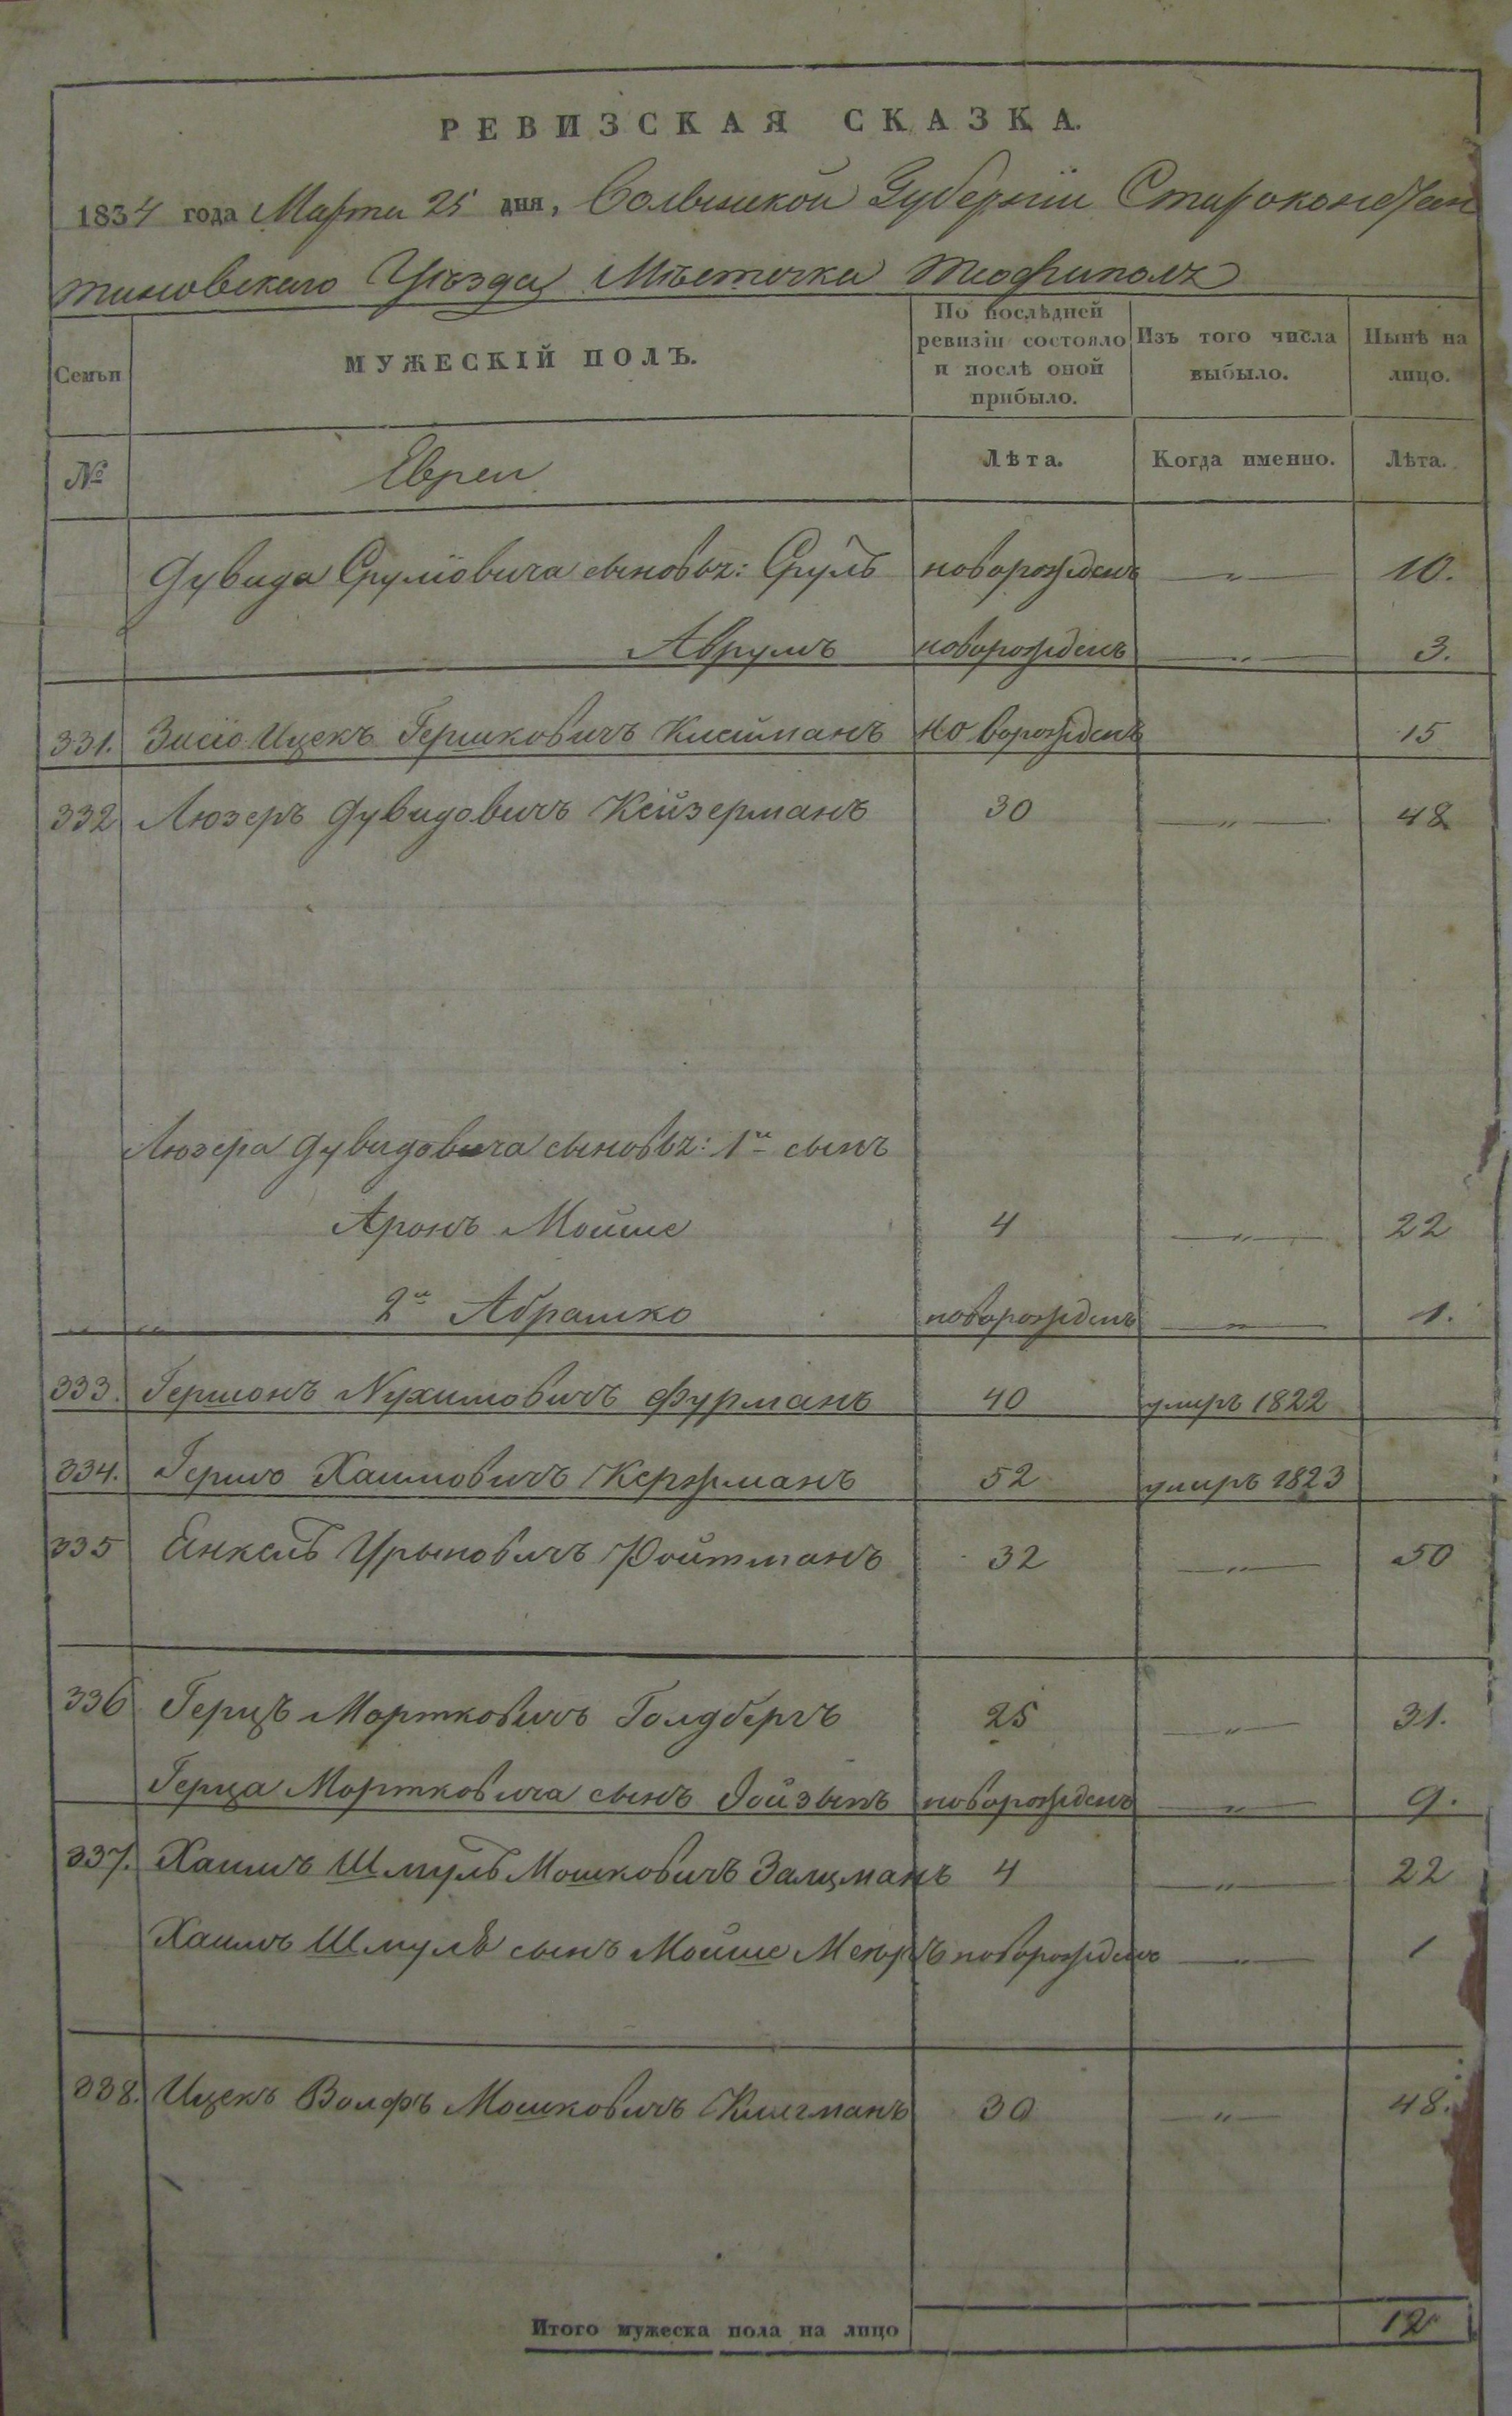 РЕВИЗСКАЯ СКАЗКА.
1834 года Марта 25 дня, Волынской Губернии Староконстан
тиновскаго Уѣзда Мѣстечка Теофиполъ
Семьи
МУЖЕСКІЙ ПОЛЪ.
По послѣдней ревизіи состояло и послѣ оной прибыло.
Изъ того числа выбыло.
Нынѣ на лицо.
№ Евреи Лѣта. Когда именно. Лѣта.
Дувида Срулiовича сыновьъ: Сруль новорожденъ —„— 10.
Аврумъ новорожденъ —„— 3.
331. Зисiо Ицекъ Гершковичъ новорожденъ 15
332 Люзеръ Дувидовичъ Кейзерманъ 30 —„— 48
Люзера Дувидовича сыновьъ: 1й сынъ
Аронъ Мойше 4 —„— 22
„ „ 2й Абрашко новорожденъ —„— 1.
333. Гершонъ Нухимовичъ Фурманъ 40 умиръ 1822
334. Гершо Хаимовичъ Кержманъ 52 умиръ 1823
335 Енкель Урыновичъ Ройтманъ 32 —„— 50
336 Герцъ Мортковичъ Голдбергъ 25 —„— 31.
Герца Мортковича сынъ новорожденъ —„— 9.
337. Хаимъ Шмуль Мошковичъ Залцманъ 4 —„— 22
Хаимъ Шмуля сынъ Мойше Меюръ новорожденъ —„— 1
338. Ицекъ Волфъ Мошковичъ Клигманъ 30 —„— 48.
Итого мужеска пола на лицо 12